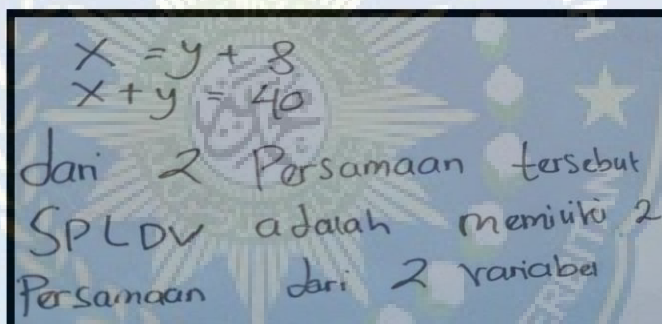 x = y + 8
x + y = 40
dari 2 Persamaan tersebut
SPLDV adalah memiliki 2
Persamaan dari 2 variabel